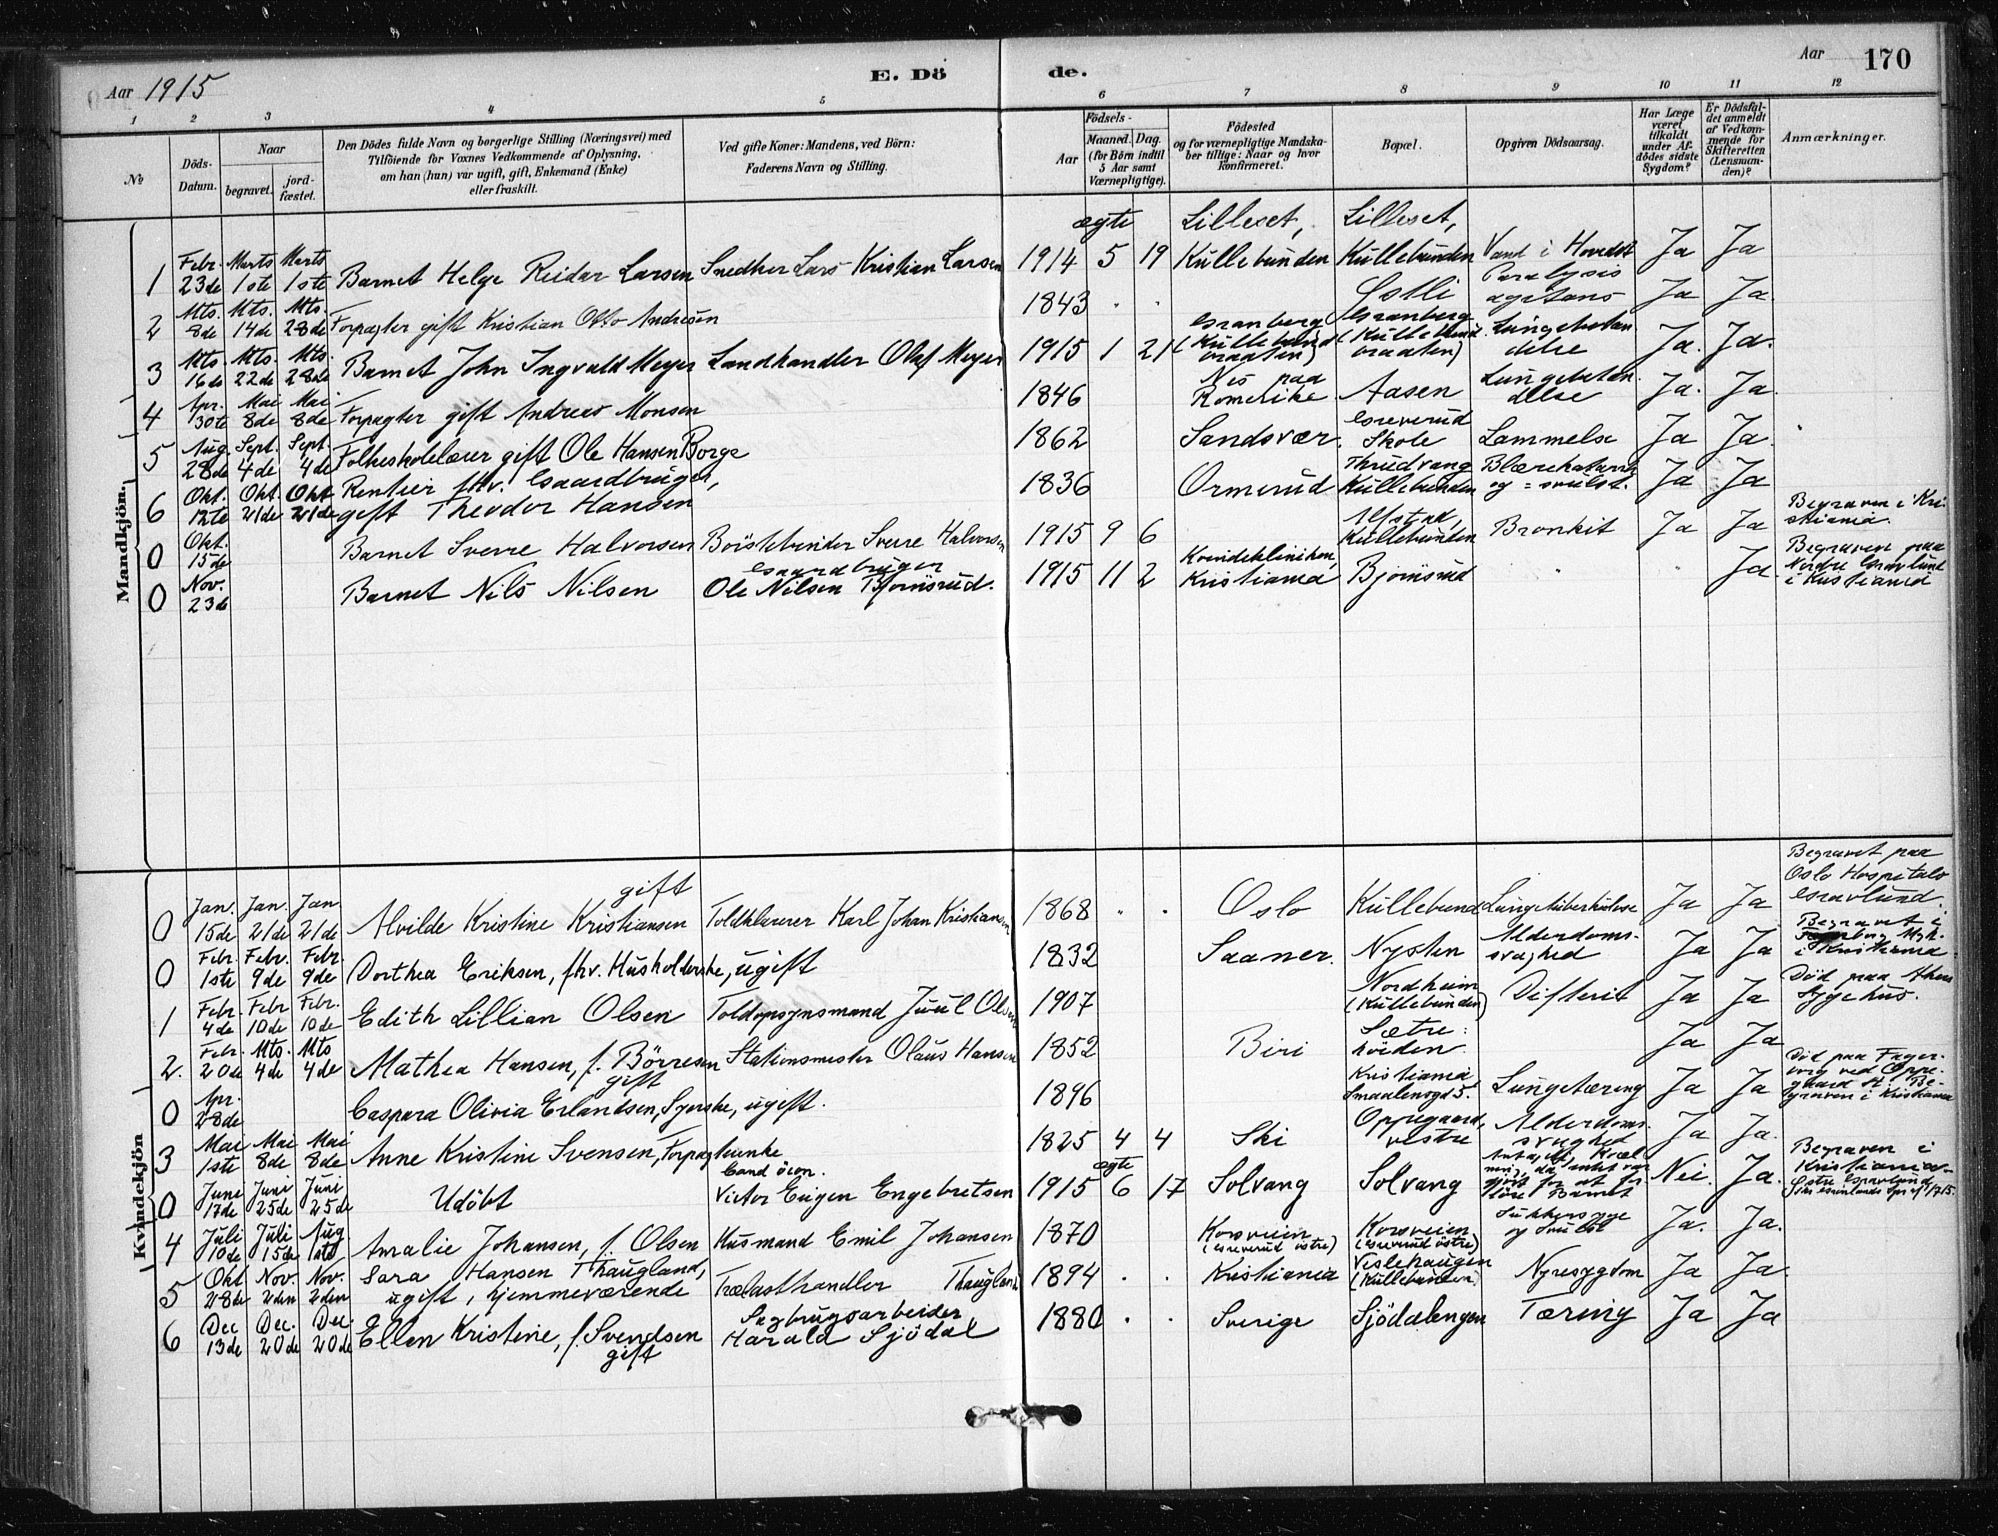 Aar 1915
E. Dö
de.
Aar 170
1 2 3 4 5 6 7 8 9 10 11 12
№
Döds-Datum.
Naar
begravet.
jord-fæstet.
Den Dödes fulde Navn og borgerlige Stilling (Næringsvei) med
Tilföiende for Voxnes Vedkommende af Oplysning,
om han (hun) var ugift, gift, Enkemand (Enke)
eller fraskilt.
Ved gifte Koner: Mandens, ved Börn:
Faderens Navn og Stilling.
Födsels-
Aar
Maaned. Dag.
(for Börn indtil
5 Aar samt
Værnepligtige).
Födested
og for værnepligtige Mandska-
ber tillige: Naar og hvor
konfirmeret.
Bopæl.
Opgiven Dödsaarsag.
Har Læge
været
tilkaldt
under Af-
dödes sidste
Sygdom?
Er Dödsfal-
det anmeldt
af Vedkom-
mende for
Skifteretten
(Lensman-
den)?
Anmærkninger.
Mandkjön.
1 Febr. 23de Marts 1ste Marts 1ste Barnet Helge Reidar Larsen Snedker Lars Kristian Larsen ægte 1914 5 19 Lilleset, Kullebunden Lilleset, Kullebunden Vand i Hovedet Ja Ja
2 Mts. 8de Mts. 14de Mts. 28de Forpagter gift Kristian Otto Andresen 1843 " " Östli Paralysis agitans Ja Ja.
3 Mts. 16de Mts. 22de Mts. 28de Barnet John Ingvald Meyer Landhandler Olaf Meyer 1915 1 21 Granberg (Kullebund braaten) Granberg (Kullebund braaten) Lungebetændelse Ja. Ja.
4 Apr. 30te Mai 8de Mai 8de Forpagter gift Andreas Monsen 1846 Nes paa Romerike Aasen Lungebetændelse Ja. Ja.
5 Aug. 28de Sept. 4de Sept. 4de Folkeskolelærer gift Ole Hansen Borge 1862 Sandsvær. Greverud Skole Lammelse Ja Ja.
6 Okt. 12te Okt. 21de Okt. 21de Rentier fhv. Gaardbruger, gift Theodor Hansen 1836 Ormerud Thrudvang Kullebunden Blærekatarrh og =svulst. Ja Ja
0 Okt. 15de Barnet Sverre Halvorsen Börstebinder Sverre Halvorsen 1915 9 6 Alfstad, Kullebunden Bronkit Ja Ja Begraven i Kristiania.
0 Nov. 23de Barnet Nils Nilsen Gaardbruger Ole Nilsen Björnsrud. 1915 11 2 Kvindekliniken, Kristiania Björnsrud " " Ja Begraven paa Nordre Gravlund i Kristiania
Kvindekjön
0 Jan. 15de Jan. 21de Jan. 21de Alvilde Kristine Kristiansen gift Toldklarerer Karl Johan Kristiansen 1868 " " Oslo Kullebund Lungetuberkulose Ja Ja Begravet paa Oslo Hospitals Gravlund.
0 Febr. 1ste Febr. 9de Febr. 9de Dorthea Eriksen, fhv. Husholderske, ugift 1832 Saaner. Nysten Alderdomssvaghed Ja Ja Begravet i Kristiania
1 Febr. 4de Febr 10de Febr. 10de Edith Lillian Olsen Toldopsynsmand Juul Olsen 1907 Nordheim (Kullebunden) Difterit Ja Ja Död paa Akers Sygehus.
2. Febr. 20de Mts. 4de Mts 4de Mathea Hansen, f. Börresen gift Stationsmester Olaus Hansen 1852 Biri Sætre: höiden. Ja Ja
0 Apr. 28de Caspara Olivia Erlandsen, Syerske, ugift. 1896 Kristiania Smaalensgd 5. Lungetæring Ja Ja Död paa Fagerborg ved Oppegaard St. Begraven i Kristiania
3 Mai 1ste Mai 8de Mai 8de Anne Kristine Svensen, Forpagterenke 1825 4 4 Ski Oppegaard, vestre Alderdomssvaghed Ja Ja.
0 Juni 17de Juni 25de Juni 25de Udöbt Cand öcon. Victor Eugen Engebretsen ægte 1915 6 17 Solvang Solvang Antagelig Kvælning, da intet var gjort for at forlöse Barnet Nei. Ja. Begraven i Kristiania Östre Gravlund
4 Juli 10de Juli 15de Aug. 1ste Amalie Johansen, f. Olsen Husmand Emil Johansen 1870 Korsveien (Greverud östre) Korsveien (Greverud östre) Sukkersyge og Svulst Ja. Ja.
5 Okt 28de Nov. 2den Nov. 2den Sara Hansen Thaugland, ugift, hjemmeværende Trælasthandler Thaugland 1894 . . Kristiania Veslehaugen (Kullebunden) Nyresygdom Ja Ja.
6 Dec 13de Dec. 20de Dec. 20de Ellen Kristine, f. Svendsen gift Sagbrugsarbeider Harald Sjödal 1880 . . Sverige Sjödalengen Tæring Ja Ja